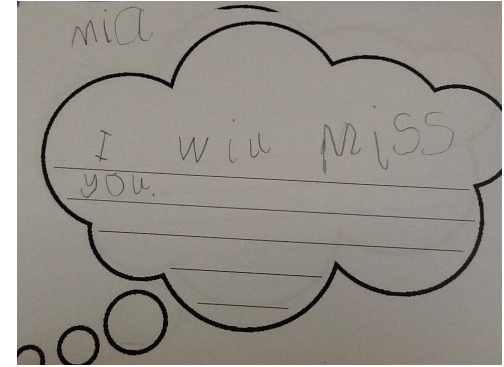 mia
I will miss
you.